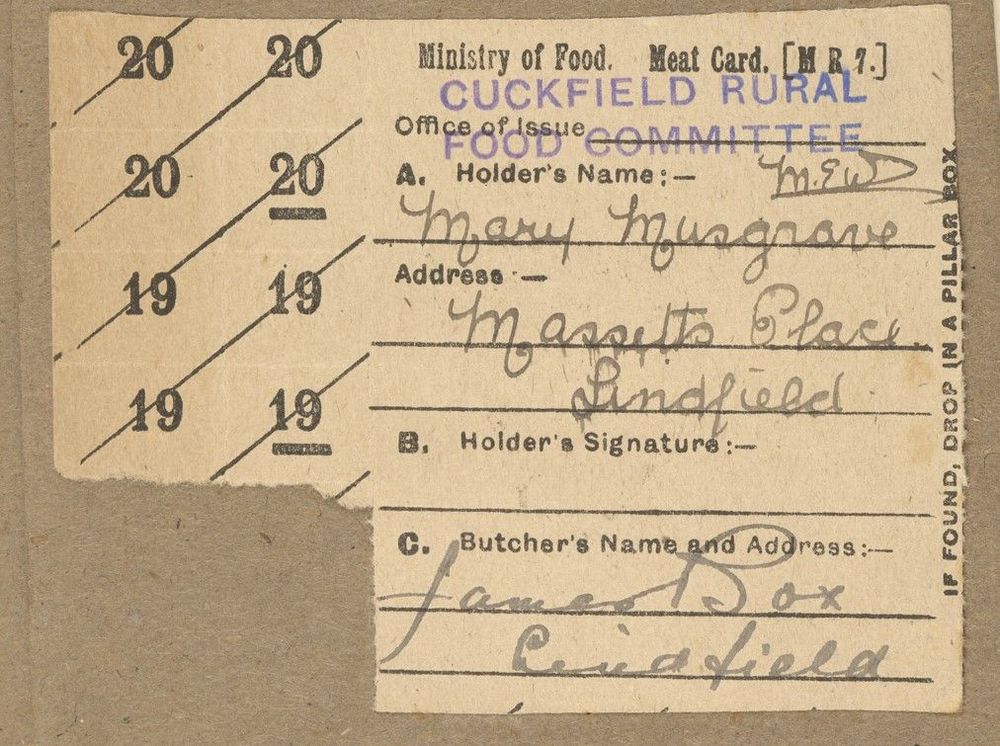 20 20
20 20
19 19
19 19
Ministry of Food. Meat Card. [M R 7.]
CUCKFIELD RURAL
Office of Issue
FOOD COMMITTEE
A. Holder's Name:— M.E.W
Mary Musgrave
Address —
Massetts Place
Lindfield
B. Holder's Signature:—
C. Butcher's Name and Address:—
James Box
Lindfield
IF FOUND, DROP IN A PILLAR BOX.